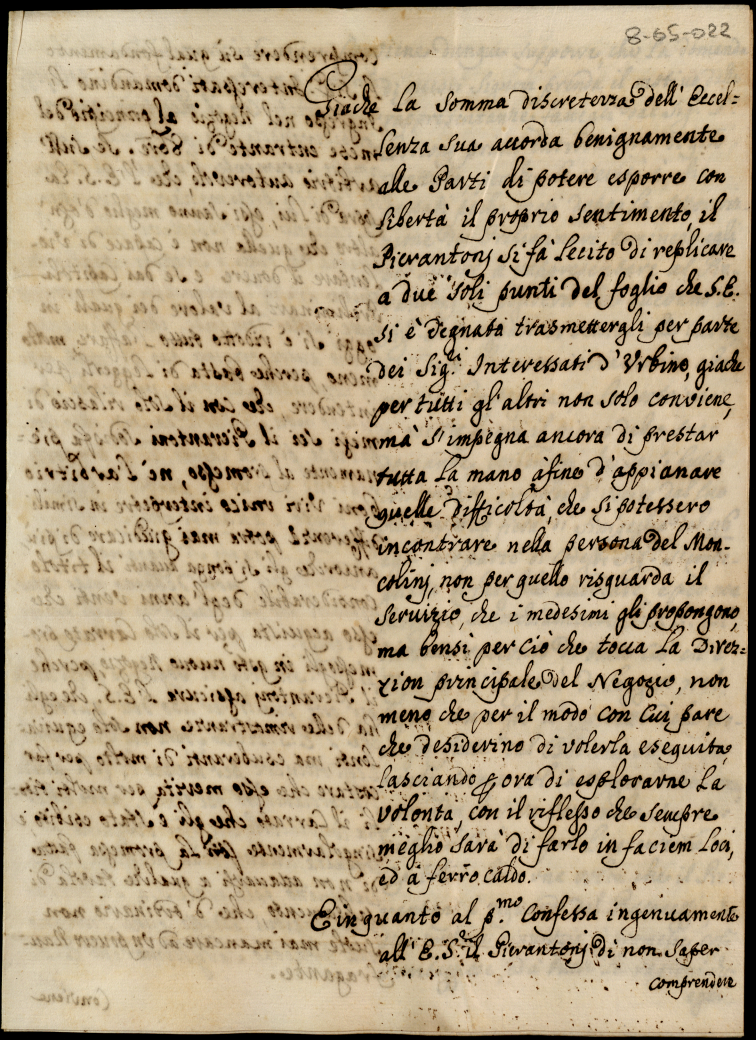 8-05-022
Giache la somma discretezza dell' Eccel=
lenza sua accorda benignamente
alle Parti di potere esporre con
libertà il proprio sentimento, il
Pierantonj si fà lecito di replicare
a due soli punti del foglio che S.E.
si è degnata trasmettergli per parte
dei Sig.ri Interessati d'Urbino, giache
per tutti gl'altri non solo conviene,
mà s'impegna ancora di prestar
tutta la mano àfine d'appianare
quelle difficoltà, che si potessero
incontrare nella persona del Mon-
colinj, non per quello risguarda il
servizio, che i medesimi gli propongono,
ma bensì per ciò che tocca la Direz=
zion principale del Negozio, non
meno che per il modo con cui pare
che desiderino di volerla eseguita,
lasciando p ora di esplorarne la
volontà, con il riflesso che sempre
meglio sarà di farlo in faciem loci,
ed à ferro caldo.
E in quanto al p.mo Confessa ingenuamente
all' E.S. il Pierantonj di non saper
comprendere